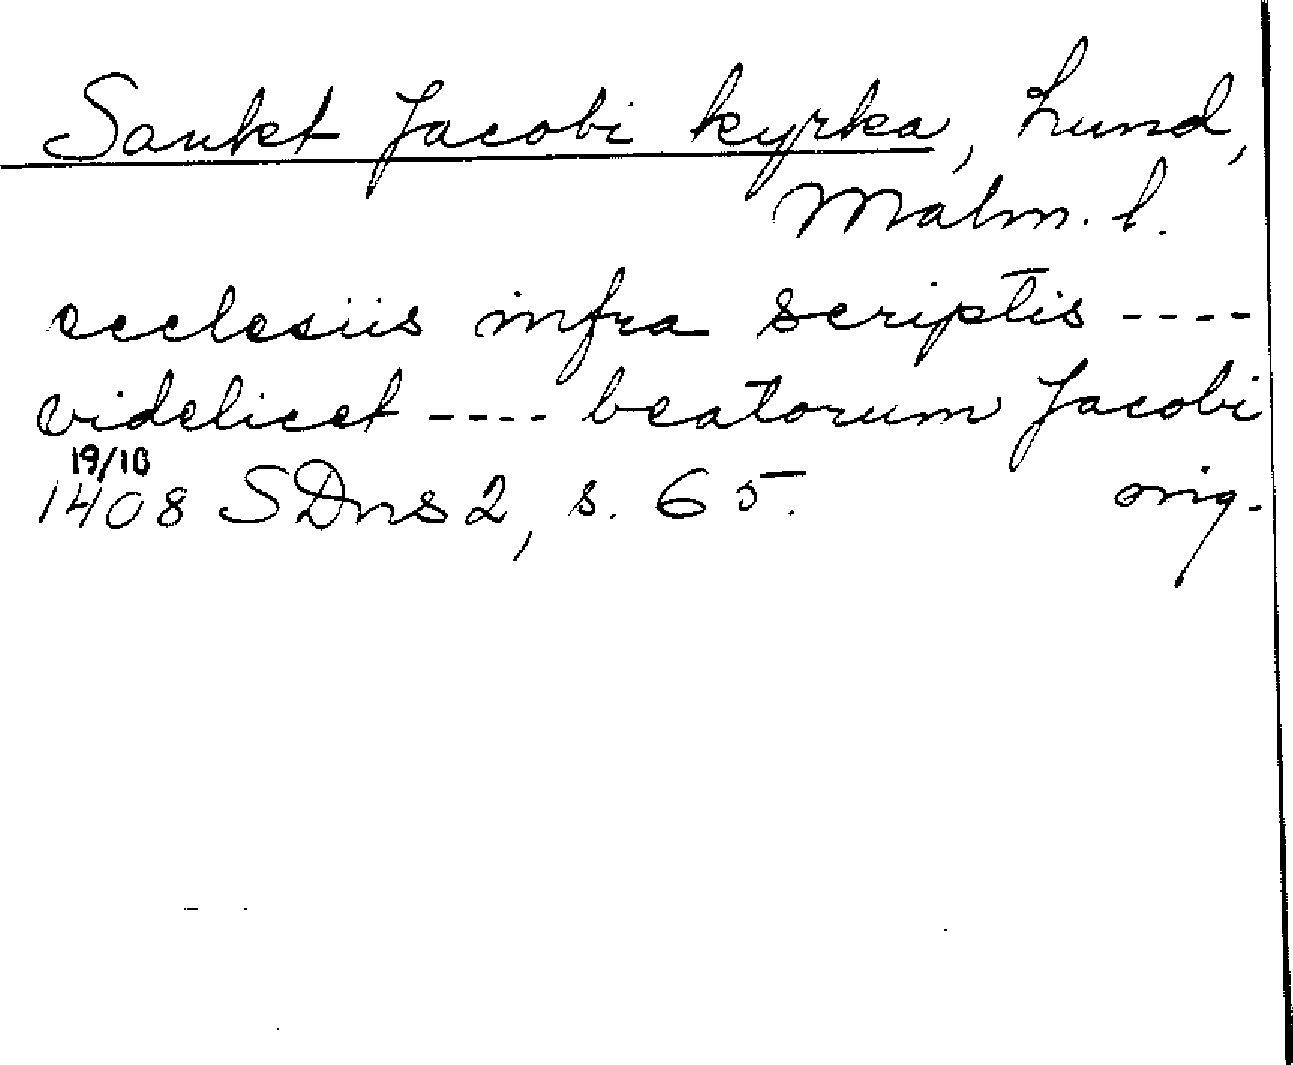 Sankt Jacobi kyrka, Lund,
Malm. l.
ecclesiis infra scriptis ----
videlicet ---- beatorum Jacobi
19/10
1408 SDns 2, s. 65. orig.